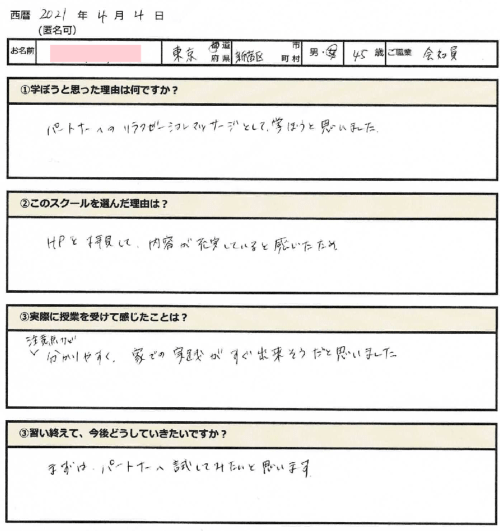 西暦 2021 年 4 月 4 日
(匿名可)
お名前 東京 都道府県 新宿区 市町村 男・女 45 歳 ご職業 会社員
①学ぼうと思った理由は何ですか?
パートナーへのリラクゼーションマッサージとして、学ぼうと思いました。
②このスクールを選んだ理由は?
HPを拝見して、内容が充実していると感じたため
③実際に授業を受けて感じたことは?
注意点などが
分かりやすく、家での実践がすぐ出来そうだと思いました
③習い終えて、今後どうしていきたいですか?
まずは、パートナーへ試してみたいと思います。